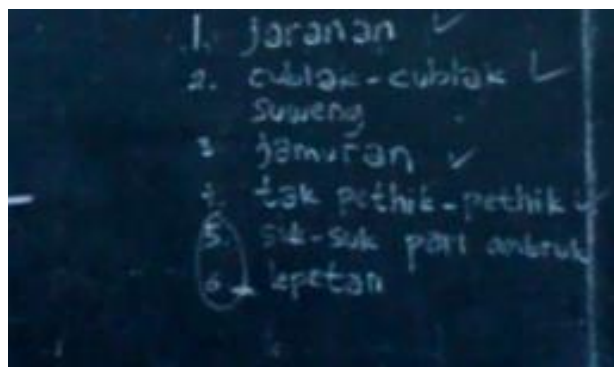 1. jaranan ✓
2. cublak-cublak ✓
suweng
3 jamuran ✓
4. tak pethik-pethik ✓
5. suk-suk pari ambruk
6. lepetan